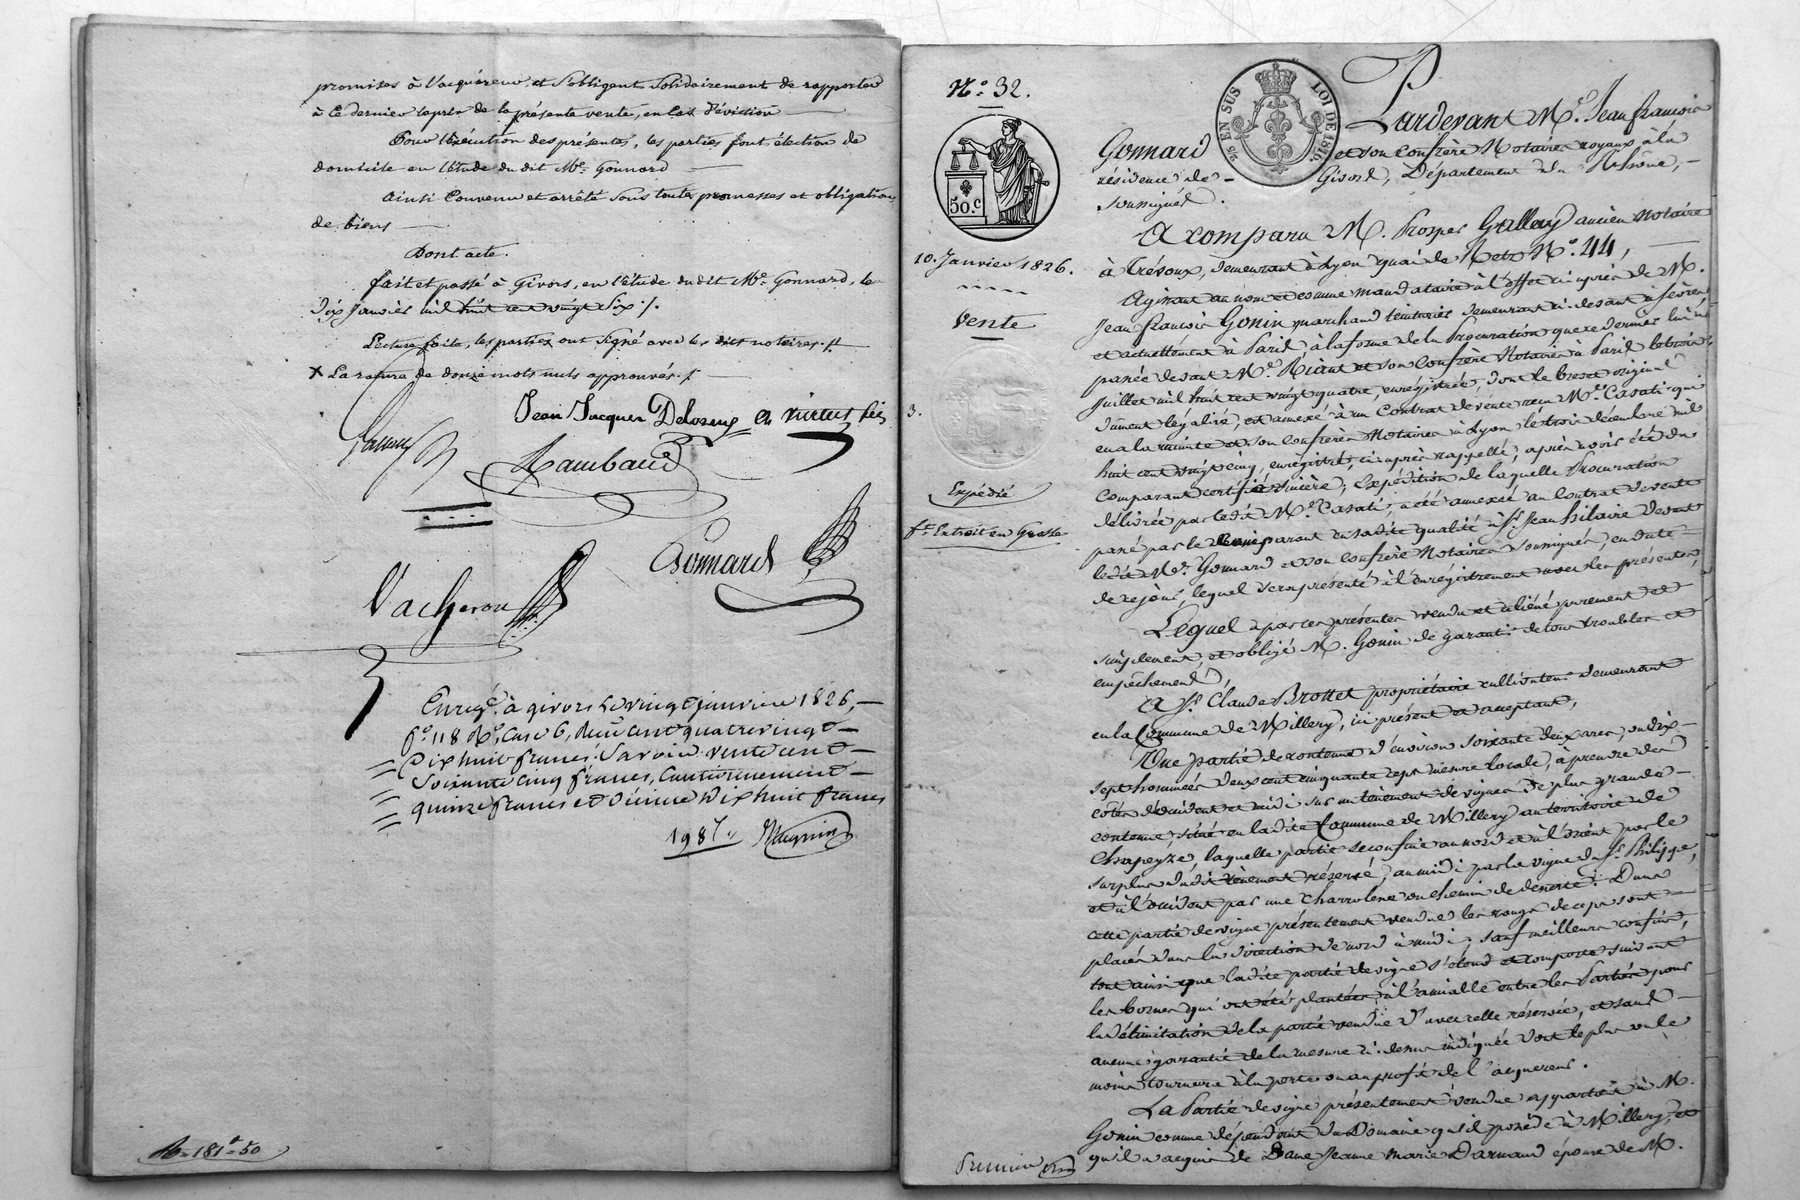 promises à l'acquéreur, et s'obligent solidairement de rapporter
à ce dernier le prix de la présente vente, en cas d'éviction
Pour l'exécution des présentes, les parties font élection de
domicile en l'étude du dit Me. Gonnard
Ainsi convenu et arrêté sous toutes promesses et obligations
de biens
Dont acte.
fait et passé à Givors, en l'étude du dit Me. Gonnard, le
dix janvier mil huit cent vingt six ./.
Lecture faite, les parties ont signé avec les dits notaires ./.
X La rature de douze mots nuls approuvés ./.
Jean Jacques
Rambaud
Gonnard
Vacheron
Enregé. à givors le vingt janvier 1826,
fo. 118 Ro. Case 6, Reçu cent quatre vingt
Dix huit francs, Savoir vente cent
Soixante cinq francs, Cautionnement
quinze francs et Décime Dix huit francs
198 f
Magnin
R. 181 = 50
No. 32.
25 EN SUS LOI DE 1816.
50.c
10. Janvier 1826.
Vente
3.
Expédié
ft. Extrait en Grosse
Pardevant Me. Jean françois
Gonnard et son Confrère Notaires royaux à la
résidence de Givors, Département du Rhône,
soussignés.
A comparu M. Prosper ancien Notaire
à Trévoux, demeurant à Lyon quai de Retz No. 44,
Agissant au nom et comme mandataire à l'effet ci-après de M.
Jean françois Gonin marchand teinturier demeurant ci-devant à
et actuellement à Paris, à la forme de la Procuration que ce dernier lui a
passée devant Me. Riant et son Confrère Notaires à Paris le trois
juillet mil huit cent vingt quatre, enregistrée, dont le brevet original
dument légalisé, est annexé à un Contrat de vente reçu Me. Casati qui
en a la minute et son confrère Notaires à Lyon le trois décembre mil
huit cent vingt cinq, enregistré, ci-après rappellé; après avoir été du
Comparant certifié sincère; Expédition de laquelle Procuration
délivrée par ledit Me. Casati, a été annexée au Contrat de vente
passé par le Comparant en sadite qualité à Sr. Jean hilaire devant
ledit Me. Gonnard et son confrère Notaires soussignés, en date
de ce jour, lequel sera présenté à l'enregistrement avec les présentes,
Lequel a par ces présentes vendu et aliéné purement et
simplement, et obligé M. Gonin de garantir de tous troubles et
empêchements,
A Sr. Claude Brottet propriétaire cultivateur demeurant
en la Commune de Millery, ici présent et acceptant,
Une partie de contenue d'environ soixante deux ares, ou dix
sept hommées deux cent cinquante sept mesure locale, à prendre des
côtés d'occident et midi sur un tènement de vignes de plus grande
contenue, situé en ladite Commune de Millery au territoire de
Chapeyze, laquelle partie se confine au nord et à l'orient par le
surplus dudit tènement réservé, au midi par la vigne du Sr. Philippe,
et à l'occident par une charrolerie ou chemin de desserte. Dans
cette partie de vigne présentement vendue les rangs de ceps sont
placés dans la direction de nord à midi, sauf meilleurs confins,
tout ainsi que ladite partie de vigne s'étend et comporte suivant
les bornes qui ont été plantées à l'amiable entre les Parties pour
la délimitation de la partie vendue d'avec celle réservée, et sans
aucune garantie de la mesure ci-dessus indiquée dont le plus ou le
moins tournera à la perte ou au profit de l'acquéreur.
La Partie de vigne présentement vendue appartient à M.
Gonin comme dépendant du Domaine qu'il possède à Millery, et
qu'il a acquis de Dame Jeanne Marie Darnaud épouse de M.
Premier